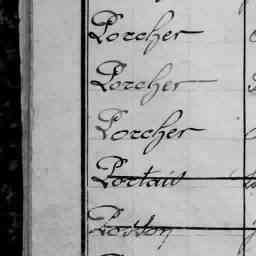 Porcher
Porcher
Porcher
Portais
Posson